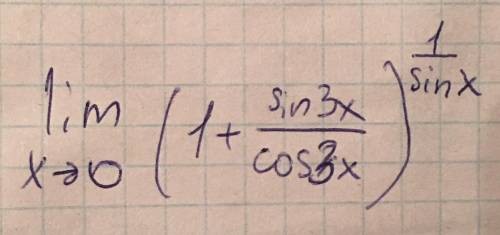 lim x→0 (1 + sin3x / cos3x)^(1 / sinx)